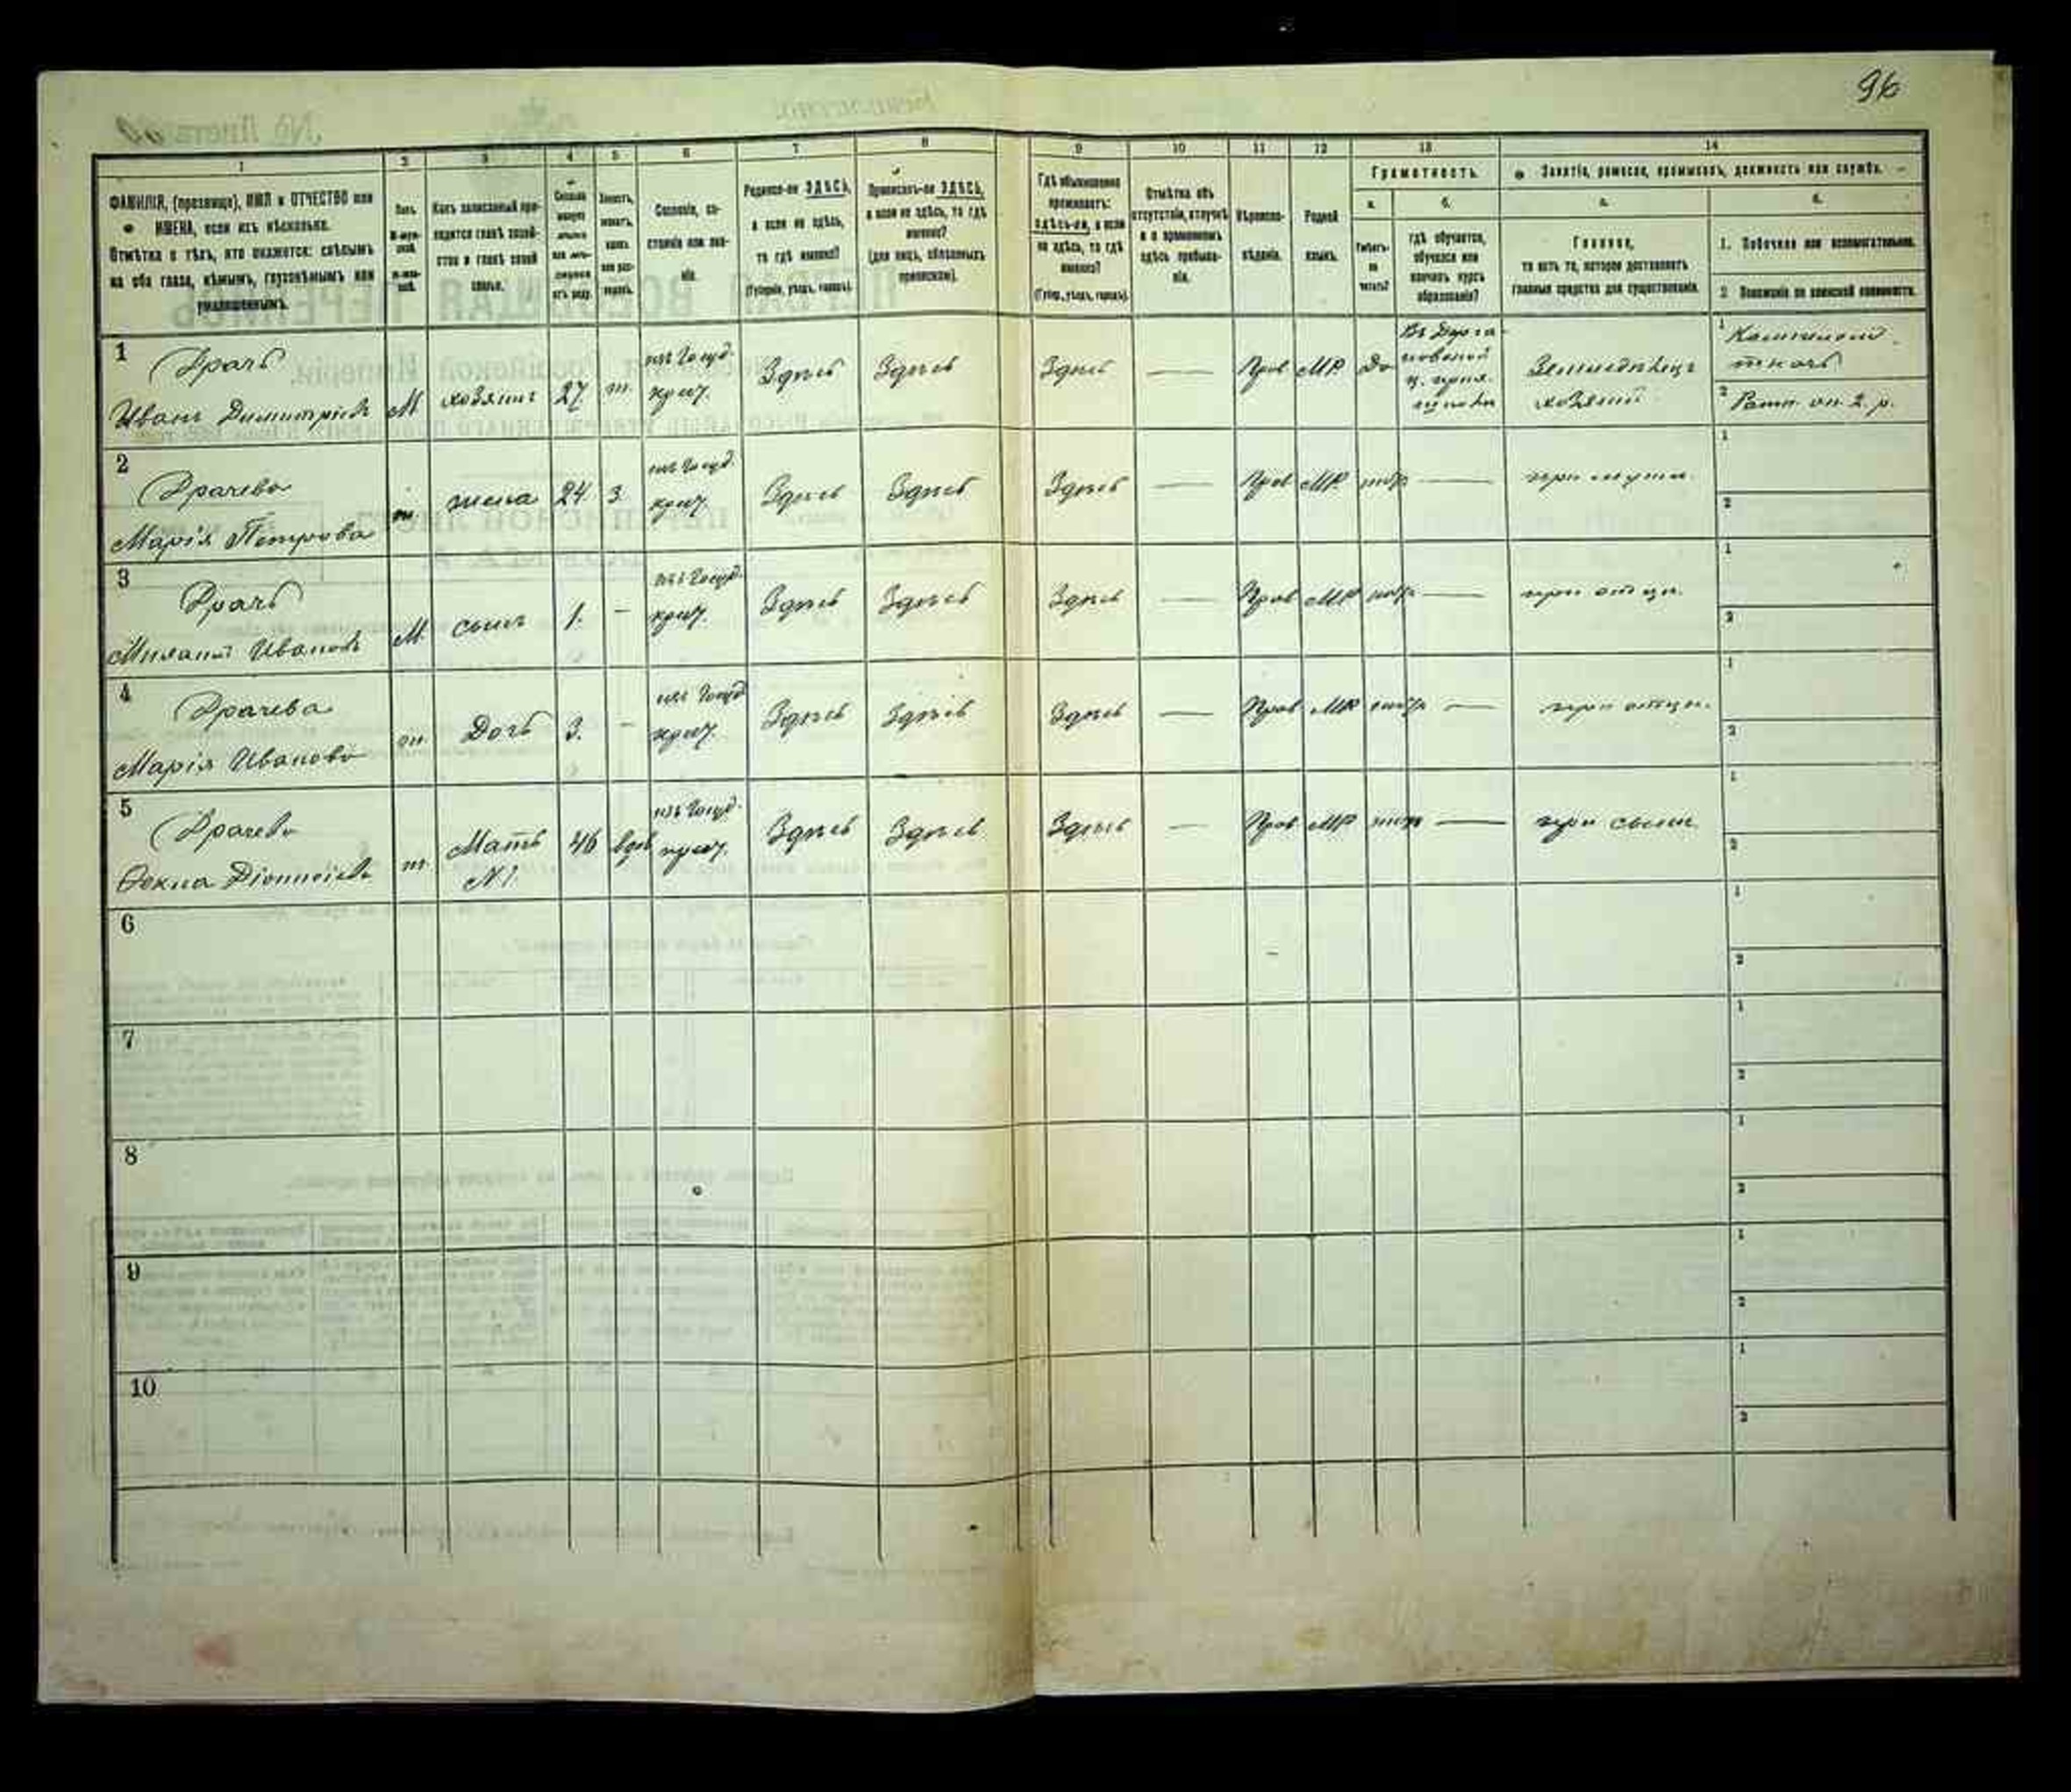 96
1 2 3 4 5 6 7 8 9 10 11 12 13 14
ФАМИЛІЯ, (прозвище), ИМЯ и ОТЧЕСТВО или
ИМЕНА, если ихъ нѣсколько.
Отмѣтка о тѣхъ, кто окажется: слѣпымъ
на оба глаза, нѣмымъ, глухонѣмымъ или
умалишеннымъ.
Полъ.
Какъ записанный при-
ходится главѣ хозяй-
ства и главѣ своей
семьи.
Сословіе, со-
стояніе или зва-
ніе.
Родился-ли ЗДѢСЬ,
а если не здѣсь,
то гдѣ именно?
(Губернія, уѣздъ, городъ).
Приписанъ-ли ЗДѢСЬ,
а если не здѣсь, то гдѣ
именно?
(для лицъ, обязанныхъ
припискою).
Гдѣ обыкновенно
проживаетъ:
ЗДѢСЬ-ли, а если
не здѣсь, то гдѣ
именно?
(Губер., уѣздъ, городъ).
Отмѣтка объ
отсутствіи, отлучкѣ
и о временномъ
здѣсь пребыва-
ніи.
Вѣроиспо-
вѣданіе.
Родной
языкъ.
Грамотность.
а. б.
Умѣетъ-
ли
читать?
гдѣ обучается,
обучался или
кончилъ курсъ
образованія?
Занятіе, ремесло, промыселъ, должность или служба.
а. б.
Главное,
то есть то, которое доставляетъ
главныя средства для существованія.
1. Побочное или вспомогательное.
2. Положеніе по воинской повинности.
1
Драчъ
Иванъ Димитріевъ
М хозяинъ 27 ж.
изъ Госуд.
крест.
Здѣсь Здѣсь Здѣсь — Прав МР. Да
Земледѣлецъ
хозяинъ
1
ткачъ
2 Ратн. оп. 2. р.
2
Драчева
Марія Петрова
ж. жена 24 з
изъ Госуд.
крест.
Здѣсь Здѣсь Здѣсь — Прав МР. нѣтъ — при мужѣ.
1
2
3
Драчъ
Иванов
М. сынъ 1. —
изъ Госуд.
крест.
Здѣсь Здѣсь Здѣсь — Прав МР нѣтъ — при отцѣ.
1
2
4
Драчева
Марія Иванова
ж. Дочь 3. —
изъ Госуд
крест.
Здѣсь Здѣсь Здѣсь — Прав МР нѣтъ — при отцѣ.
1
2
5
Драчева
Ѳекла Діонисіева
ж. Мать 46 вдов
N 1.
изъ Госуд.
крест.
Здѣсь Здѣсь Здѣсь — Прав МР нѣтъ — при сынѣ.
1
2
6
1
2
7
1
2
8
1
2
9
1
2
10
1
2